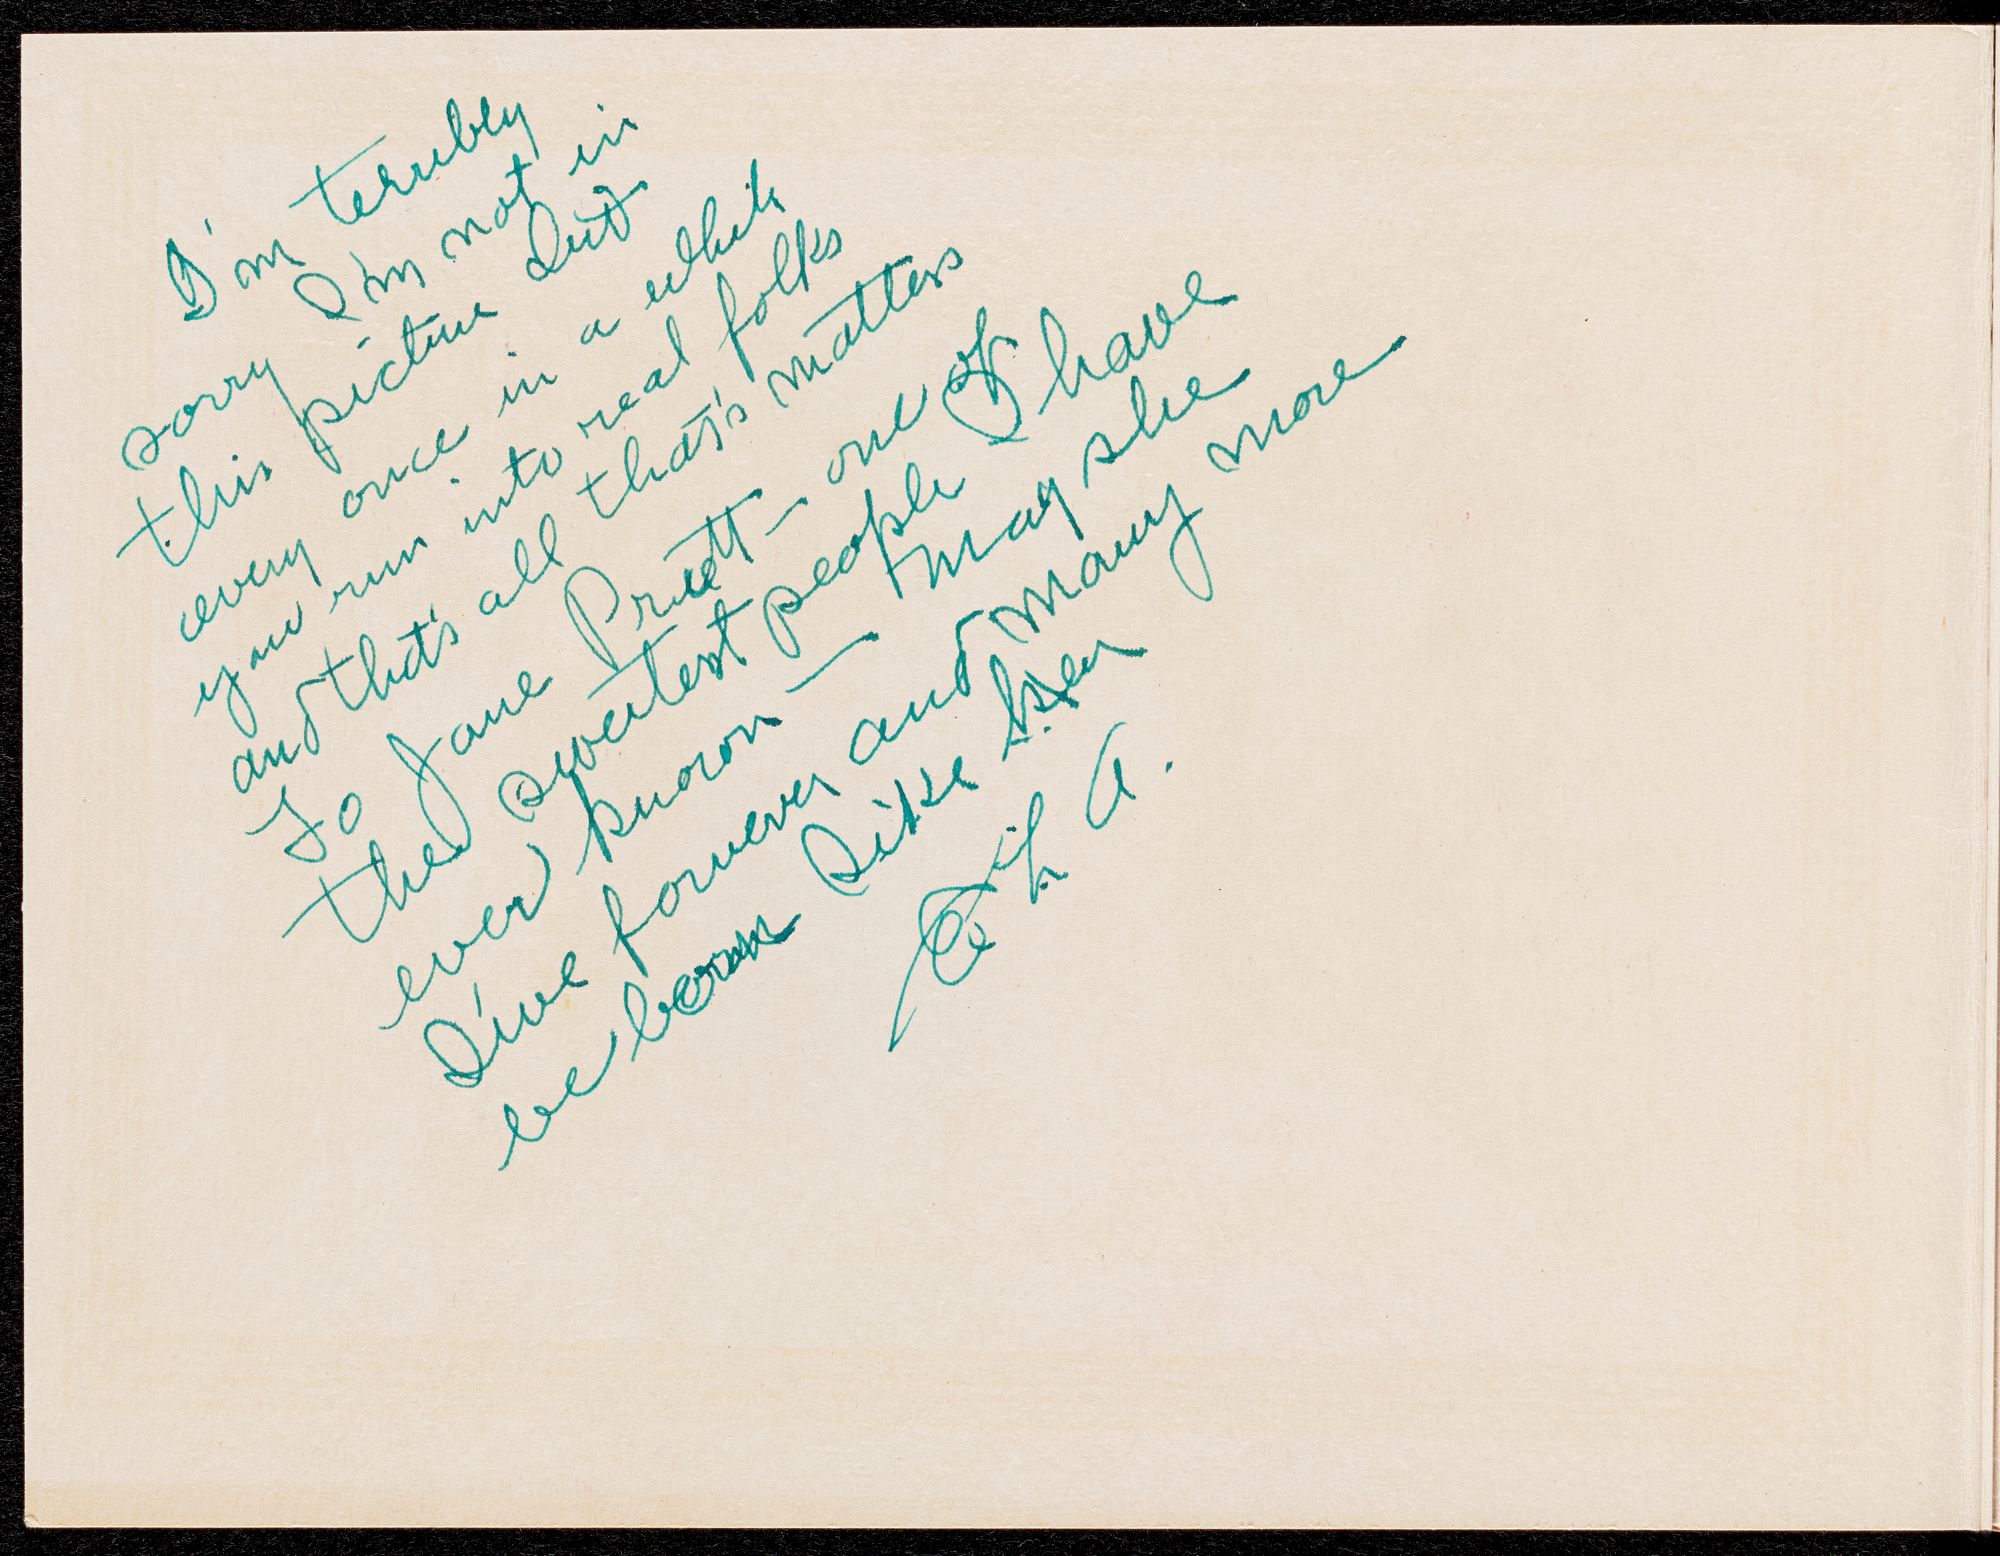 I'm terribly
sorry I'm not in
this picture but
every once in a while
you run into real folks
and that's all that's matters
To Jane Pruett - one of
the sweetest people I have
ever known - may she
live forever and many more
be born like her
A.